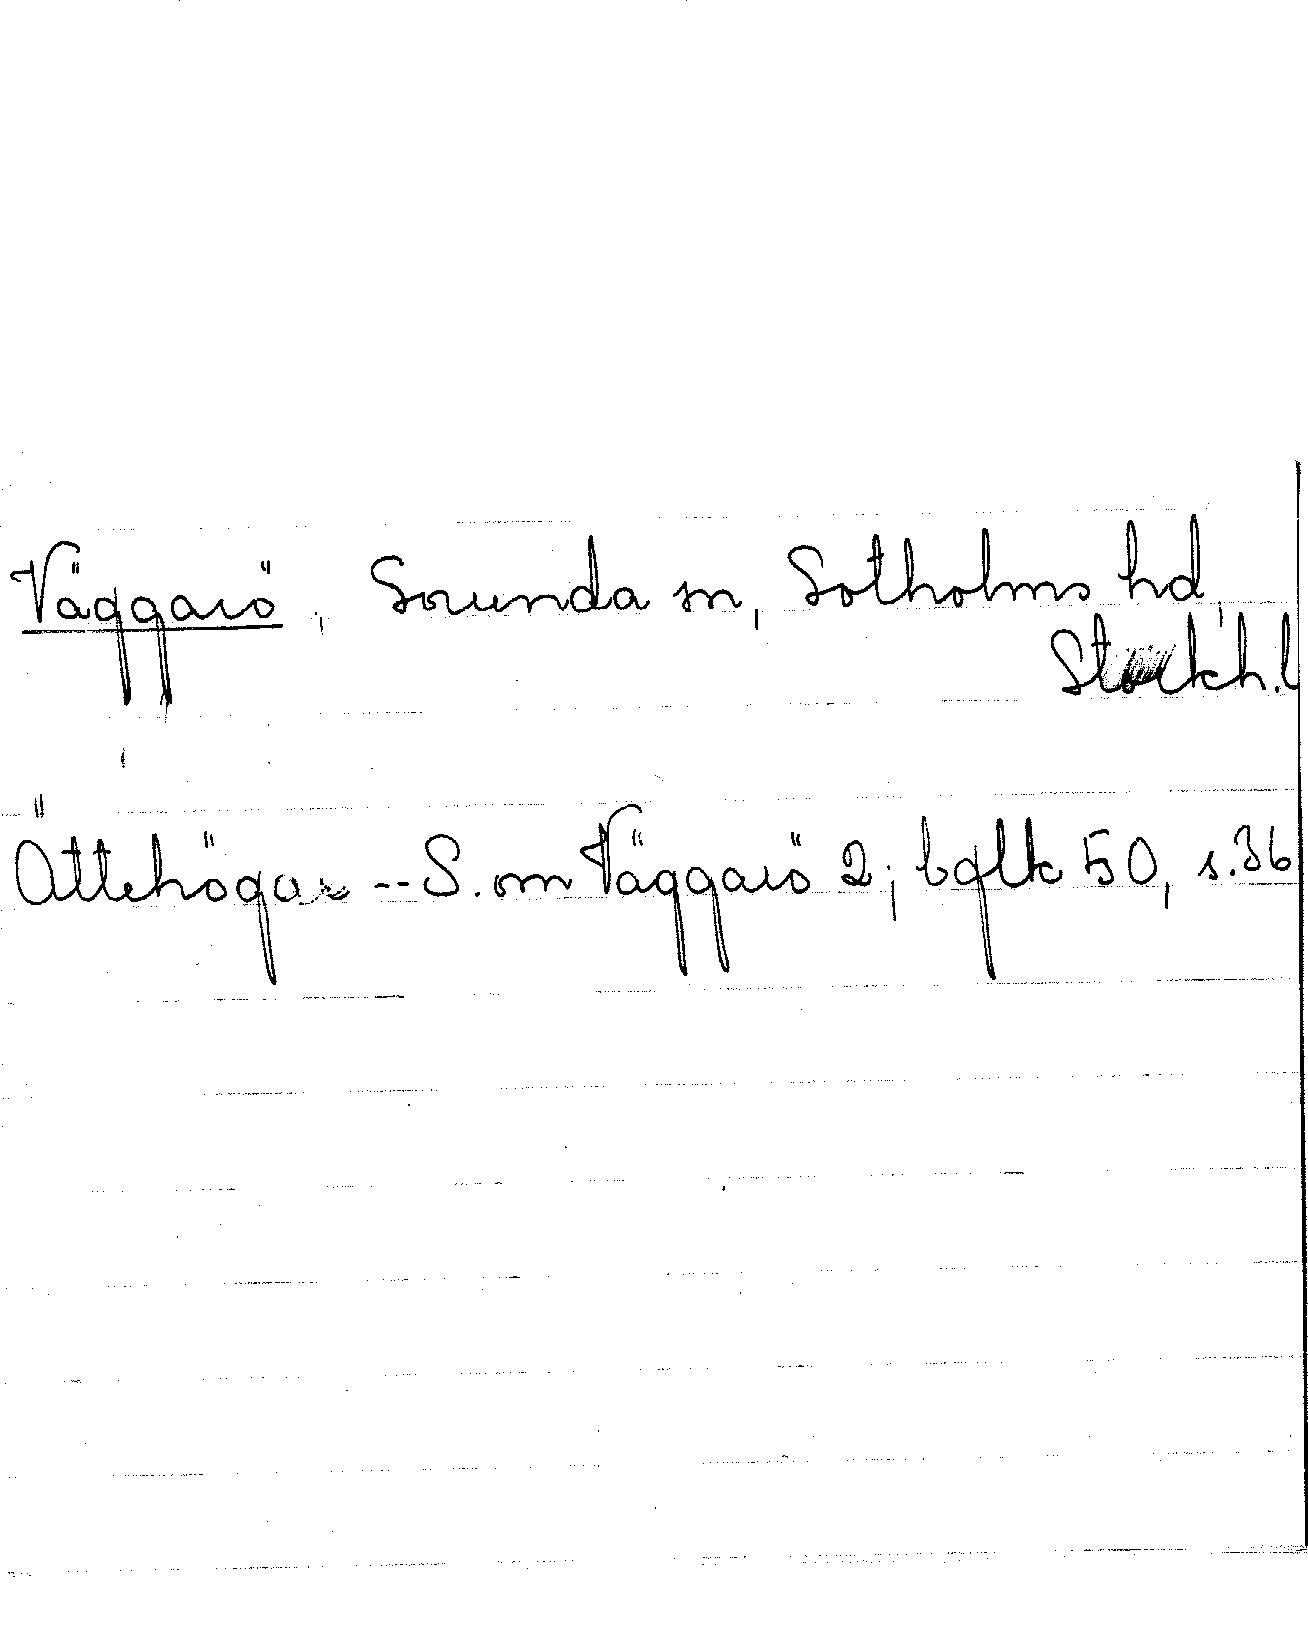 Väggarö, Sorunda sn, Sotholms hd,
Stockh.l
Ättehögar -- S. om Väggarö 2; bglk 50, s.36